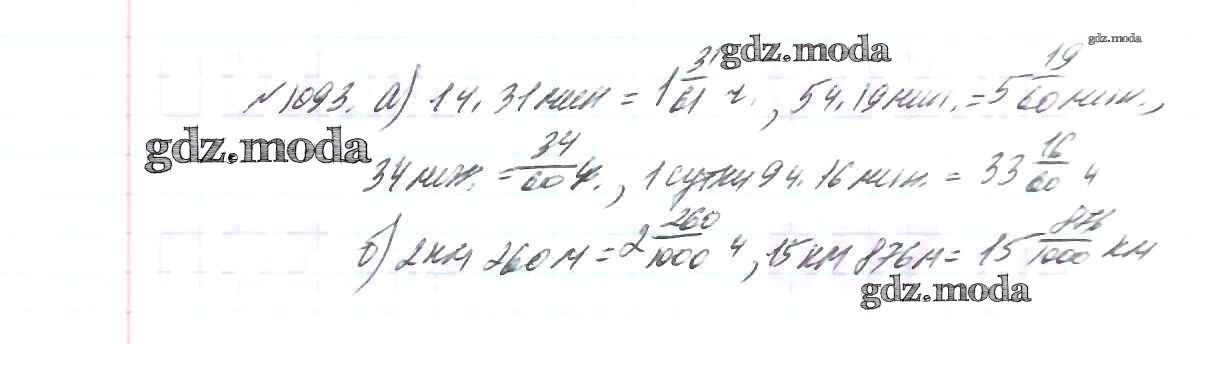 gdz.moda
gdz.moda
№1093. а) 1ч. 31мин = 1 31/61 ч., 5ч. 19мин. = 5 19/60 мин.,
gdz.moda
34мин. = 34/60 ч., 1 сутки 9ч. 16мин. = 33 16/60 ч
б) 2км 260м = 2 260/1000 ч, 15км 876м = 15 876/1000 км
gdz.moda